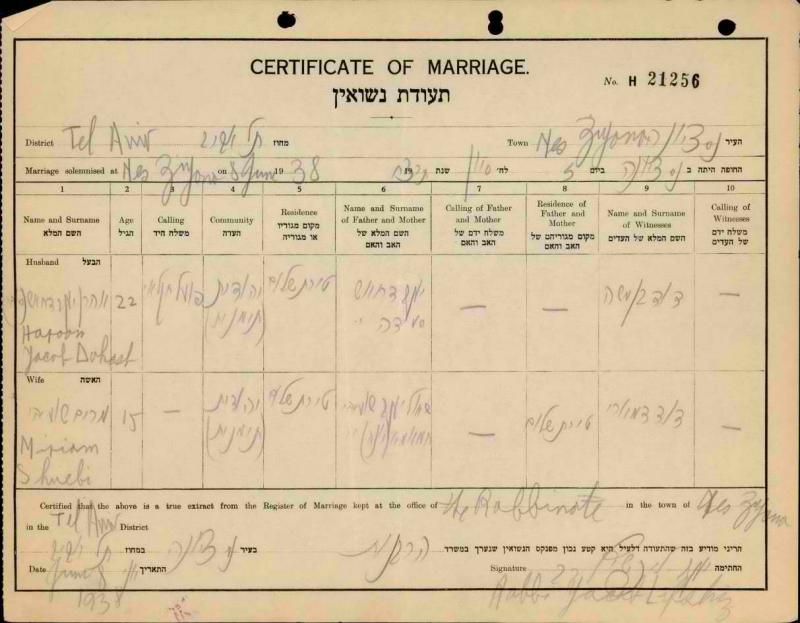 CERTIFICATE OF MARRIAGE.
No. H 21256
תעודת נשואין
District Tel Aviv תל אביב מחוז Town Nes Zyona נס ציונה העיר
Marriage solemnised at Nes Zyona on 8 June 1938 19 שנת סיון לח' 5 ביום נס ציונה החופה היתה ב
1 2 3 4 5 6 7 8 9 10
Name and Surname השם המלא
Age הגיל
Calling משלח היד
Community העדה
Residence מקום מגוריו או מגוריה
Name and Surname of Father and Mother השם המלא של האב והאם
Calling of Father and Mother משלח ידם של האב והאם
Residence of Father and Mother מקום מגוריהם של האב והאם
Name and Surname of Witnesses השם המלא של העדים
Calling of Witnesses משלח ידם של העדים
Husband הבעל
22 פועל חקלאי יהודית (תימנית) טירת שלום יעקב דחוש סעדה — — דוד בן משה —
Haroon
Jacob Dohash
Wife האשה
מרים שועיבי 15 — יהודית (תימנית) טירת שלום — טירת שלום דוד דמארי —
Miriam
Shuebi
Certified that the above is a true extract from the Register of Marriage kept at the office of the Rabbinate in the town of Nes Zyona
in the Tel Aviv District
הריני מודיע בזה שהתעודה דלעיל היא קטע נכון מפנקס הנשואין שנערך במשרד הרבנות בעיר נס ציונה במחוז תל אביב
Date June 8 התאריך Signature החתימה
1938 Rabbi Jacob Lipshiz